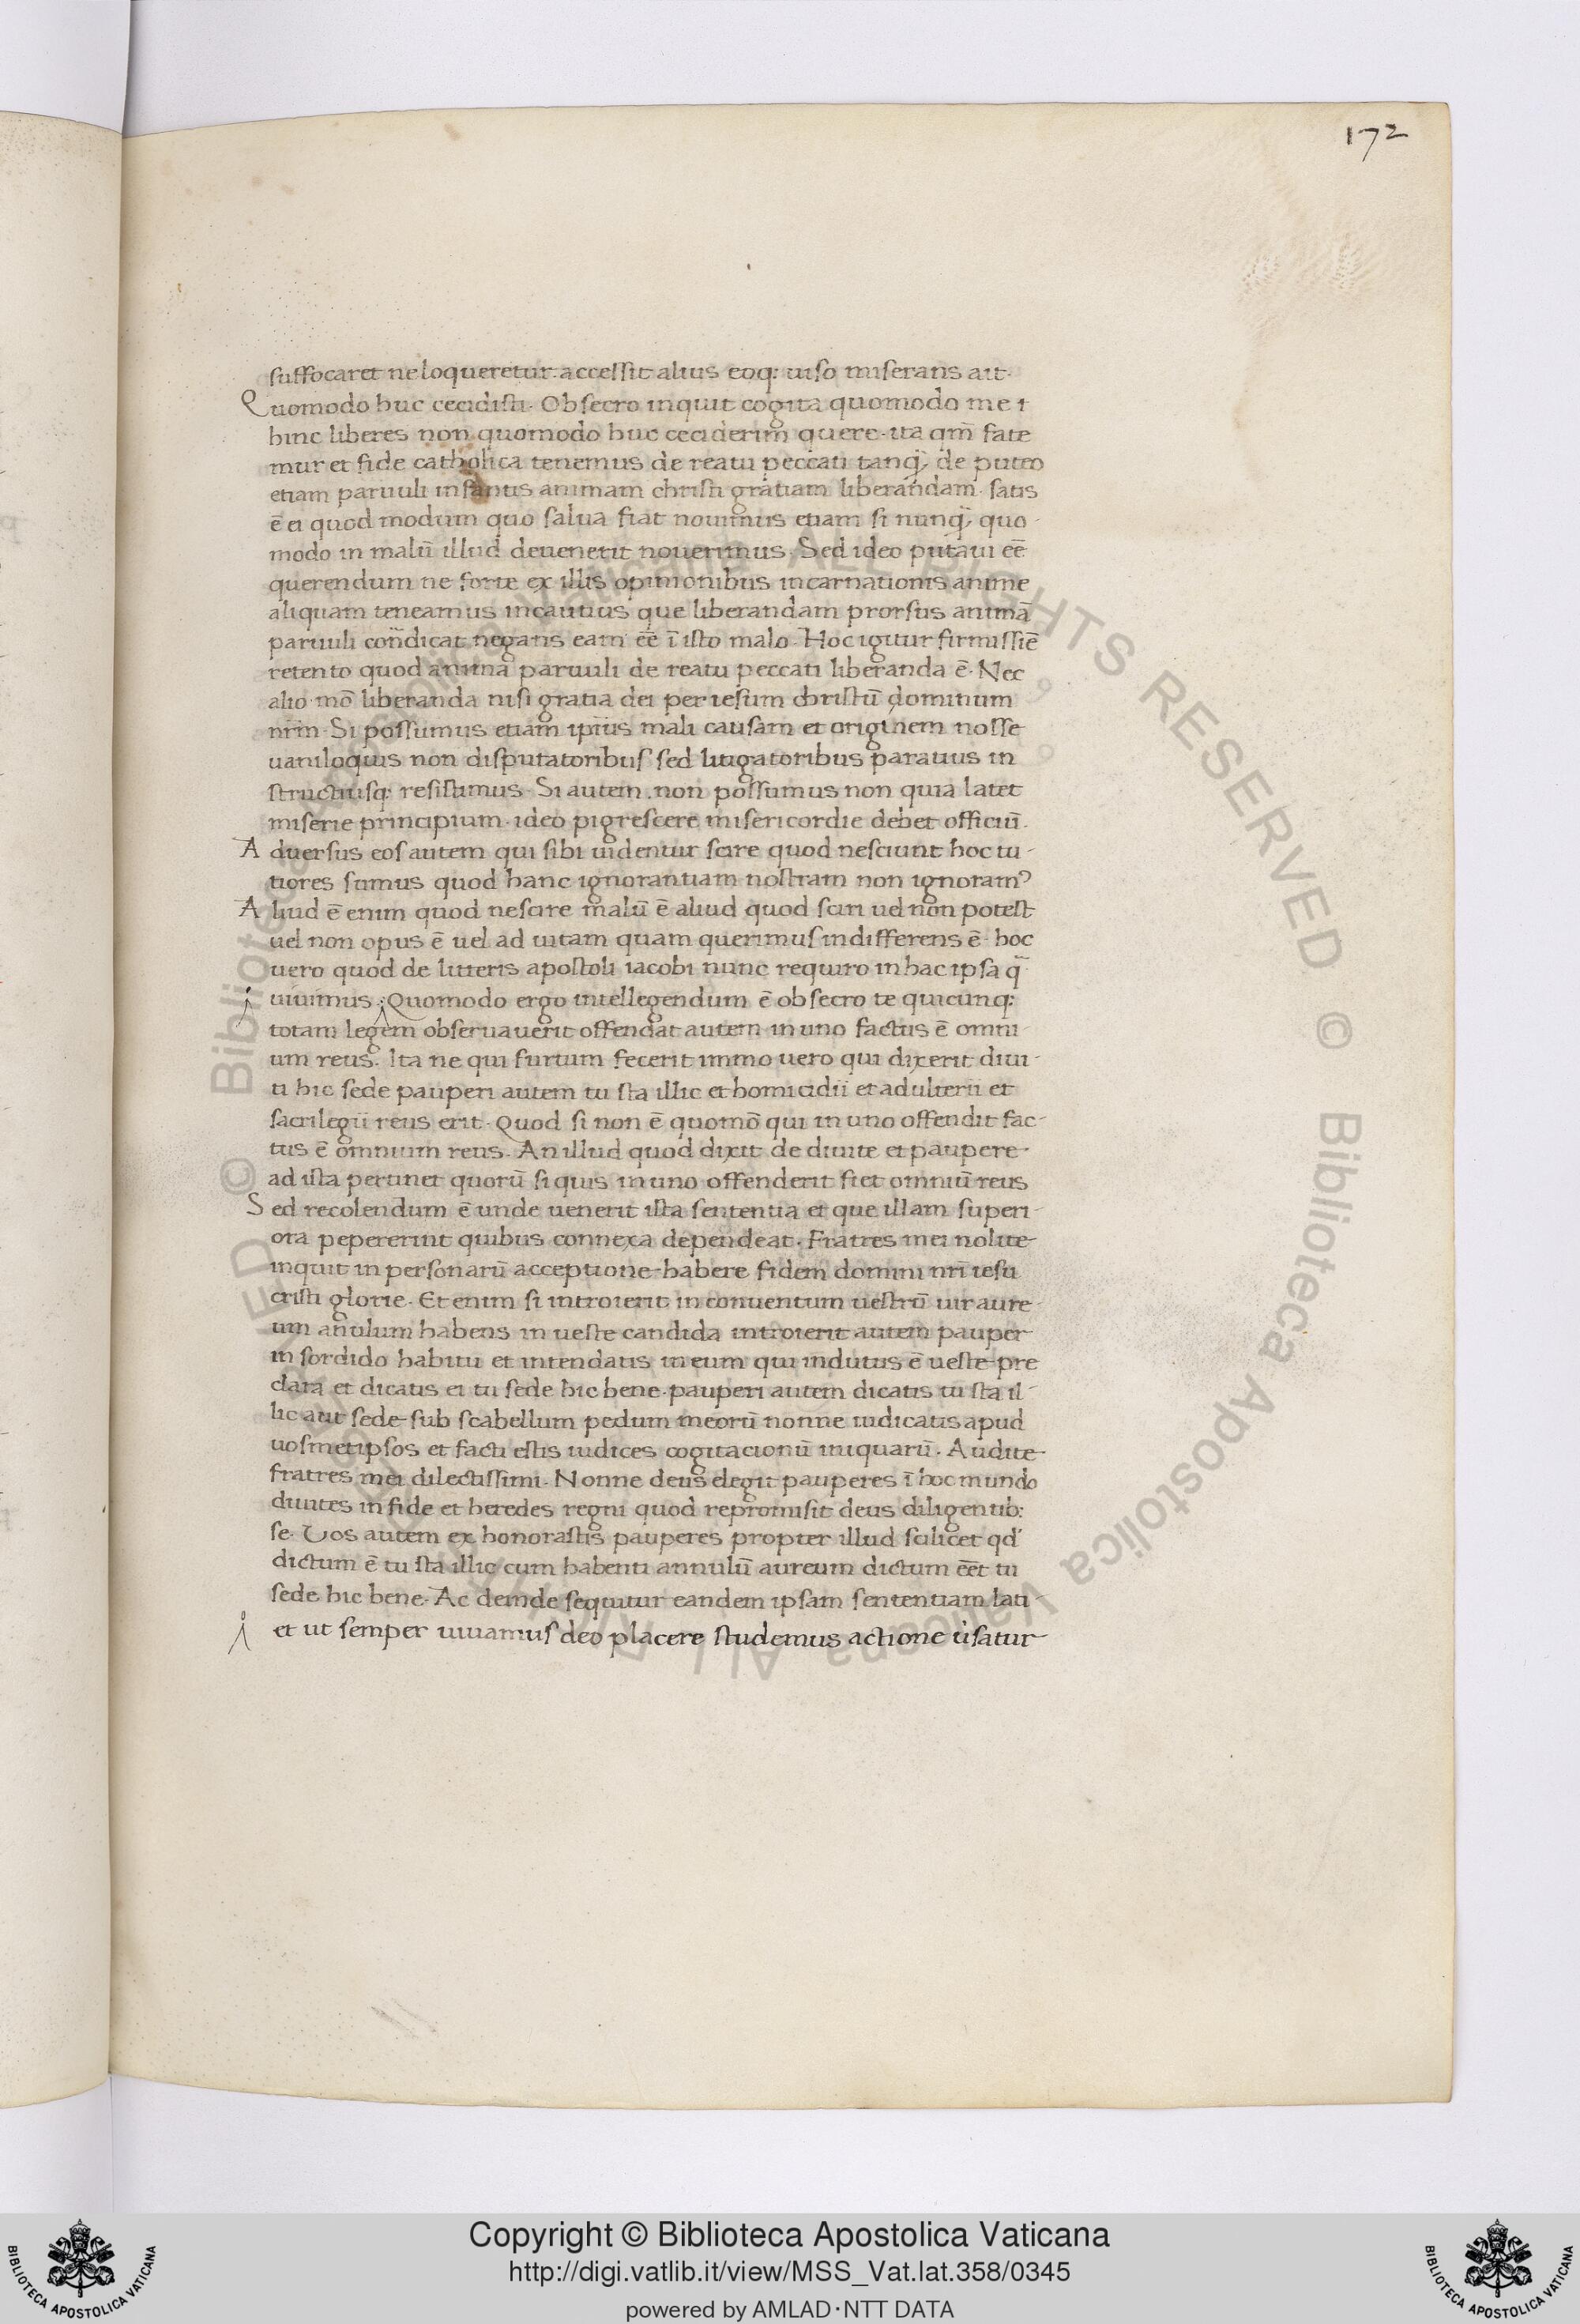 172
suffocaret ne loqueretur: accessit alius eoq; uiso miserans ait.
Quomodo huc cecidisti. Obsecro inquit cogita quomodo me i
hinc liberes non quomodo huc ceciderim quere. ita qm̄ fate
mur et fide catholica tenemus de reatu peccati tanq̄ de puteo
etiam paruuli infantis animam christi gratiam liberandam. satis
ē ei quod modum quo salua fiat nouimus etiam si nunq̄ quo-
modo in malū illud deuenerit nouerimus. Sed ideo putaui eē
querendum ne forte ex illis opinionibus incarnationis anime
aliquam teneamus incautius que liberandam prorsus animā
paruuli contradicat negans eam eē ī isto malo. Hoc igitur firmissīe
retento quod anima paruuli de reatu peccati liberanda ē. Nec
alio mō liberanda nisi gratia dei per iesum christū dominum
nr̄m. Si possumus etiam ip̄ius mali causam et originem nosse
uaniloquis non disputatoribus sed litigatoribus paratius in
structiusq; resistimus. Si autem non possumus non quia latet
miserie principium. ideo pigrescere misericordie debet officiū.
Aduersus eos autem qui sibi uidentur scire quod nesciunt hoc tu-
tiores sumus quod hanc ignorantiam nostram non ignoramꝰ
Aliud ē enim quod nescire malū ē aliud quod sciri uel non potest
uel non opus ē uel ad uitam quam querimus indifferens ē. hoc
uero quod de litteris apostoli iacobi nunc requiro in hac ipsa q̄
uiuimus. Quomodo ergo intellegendum ē obsecro te quicunq;
totam legem obseruauerit offendat autem in uno factus ē omni-
um reus. Ita ne qui furtum fecerit immo uero qui dixerit diui-
ti hic sede pauperi autem tu sta illic et homicidii et adulterii et
sacrilegii reus erit. Quod si non ē quomō qui in uno offendit fac-
tus ē omnium reus. An illud quod dixit de diuite et paupere
ad ista pertinet quorū si quis in uno offenderit fiet omniū reus
Sed recolendum ē unde uenerit ista sententia et que illam superi-
ora pepererint quibus connexa dependeat. Fratres mei nolite
inquit in personarū acceptione habere fidem domini nr̄i iesu
cristi glorie. Et enim si introierit in conuentum uestrū uir aure-
um anulum habens in ueste candida introierit autem pauper
in sordido habitu et intendatis in eum qui indutus ē ueste pre
clara et dicatis ei tu sede hic bene. pauperi autem dicatis tu sta il-
lic aut sede sub scabellum pedum meorū nonne iudicatis apud
uosmetipsos et facti estis iudices cogitacionū iniquarū. Audite
fratres mei dilectissimi. Nonne deus elegit pauperes ī hoc mundo
diuites in fide et heredes regni quod repromisit deus diligentib;
se. Vos autem exhonorastis pauperes propter illud scilicet qd̕
dictum ē tu sta illic cum habenti annulū aureum dictum eēt tu
sede hic bene. Ac deinde sequitur eandem ipsam sententiam lati-
et ut semper uiuamus deo placere studemus actione u̇satur
Copyright © Biblioteca Apostolica Vaticana
http://digi.vatlib.it/view/MSS_Vat.lat.358/0345
powered by AMLAD·NTT DATA
BIBLIOTECA APOSTOLICA VATICANA
BIBLIOTECA APOSTOLICA VATICANA